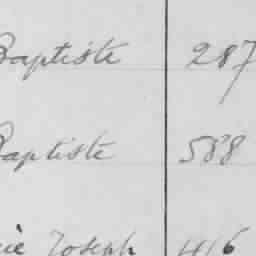 Baptiste 287
Baptiste 588
Joseph 416